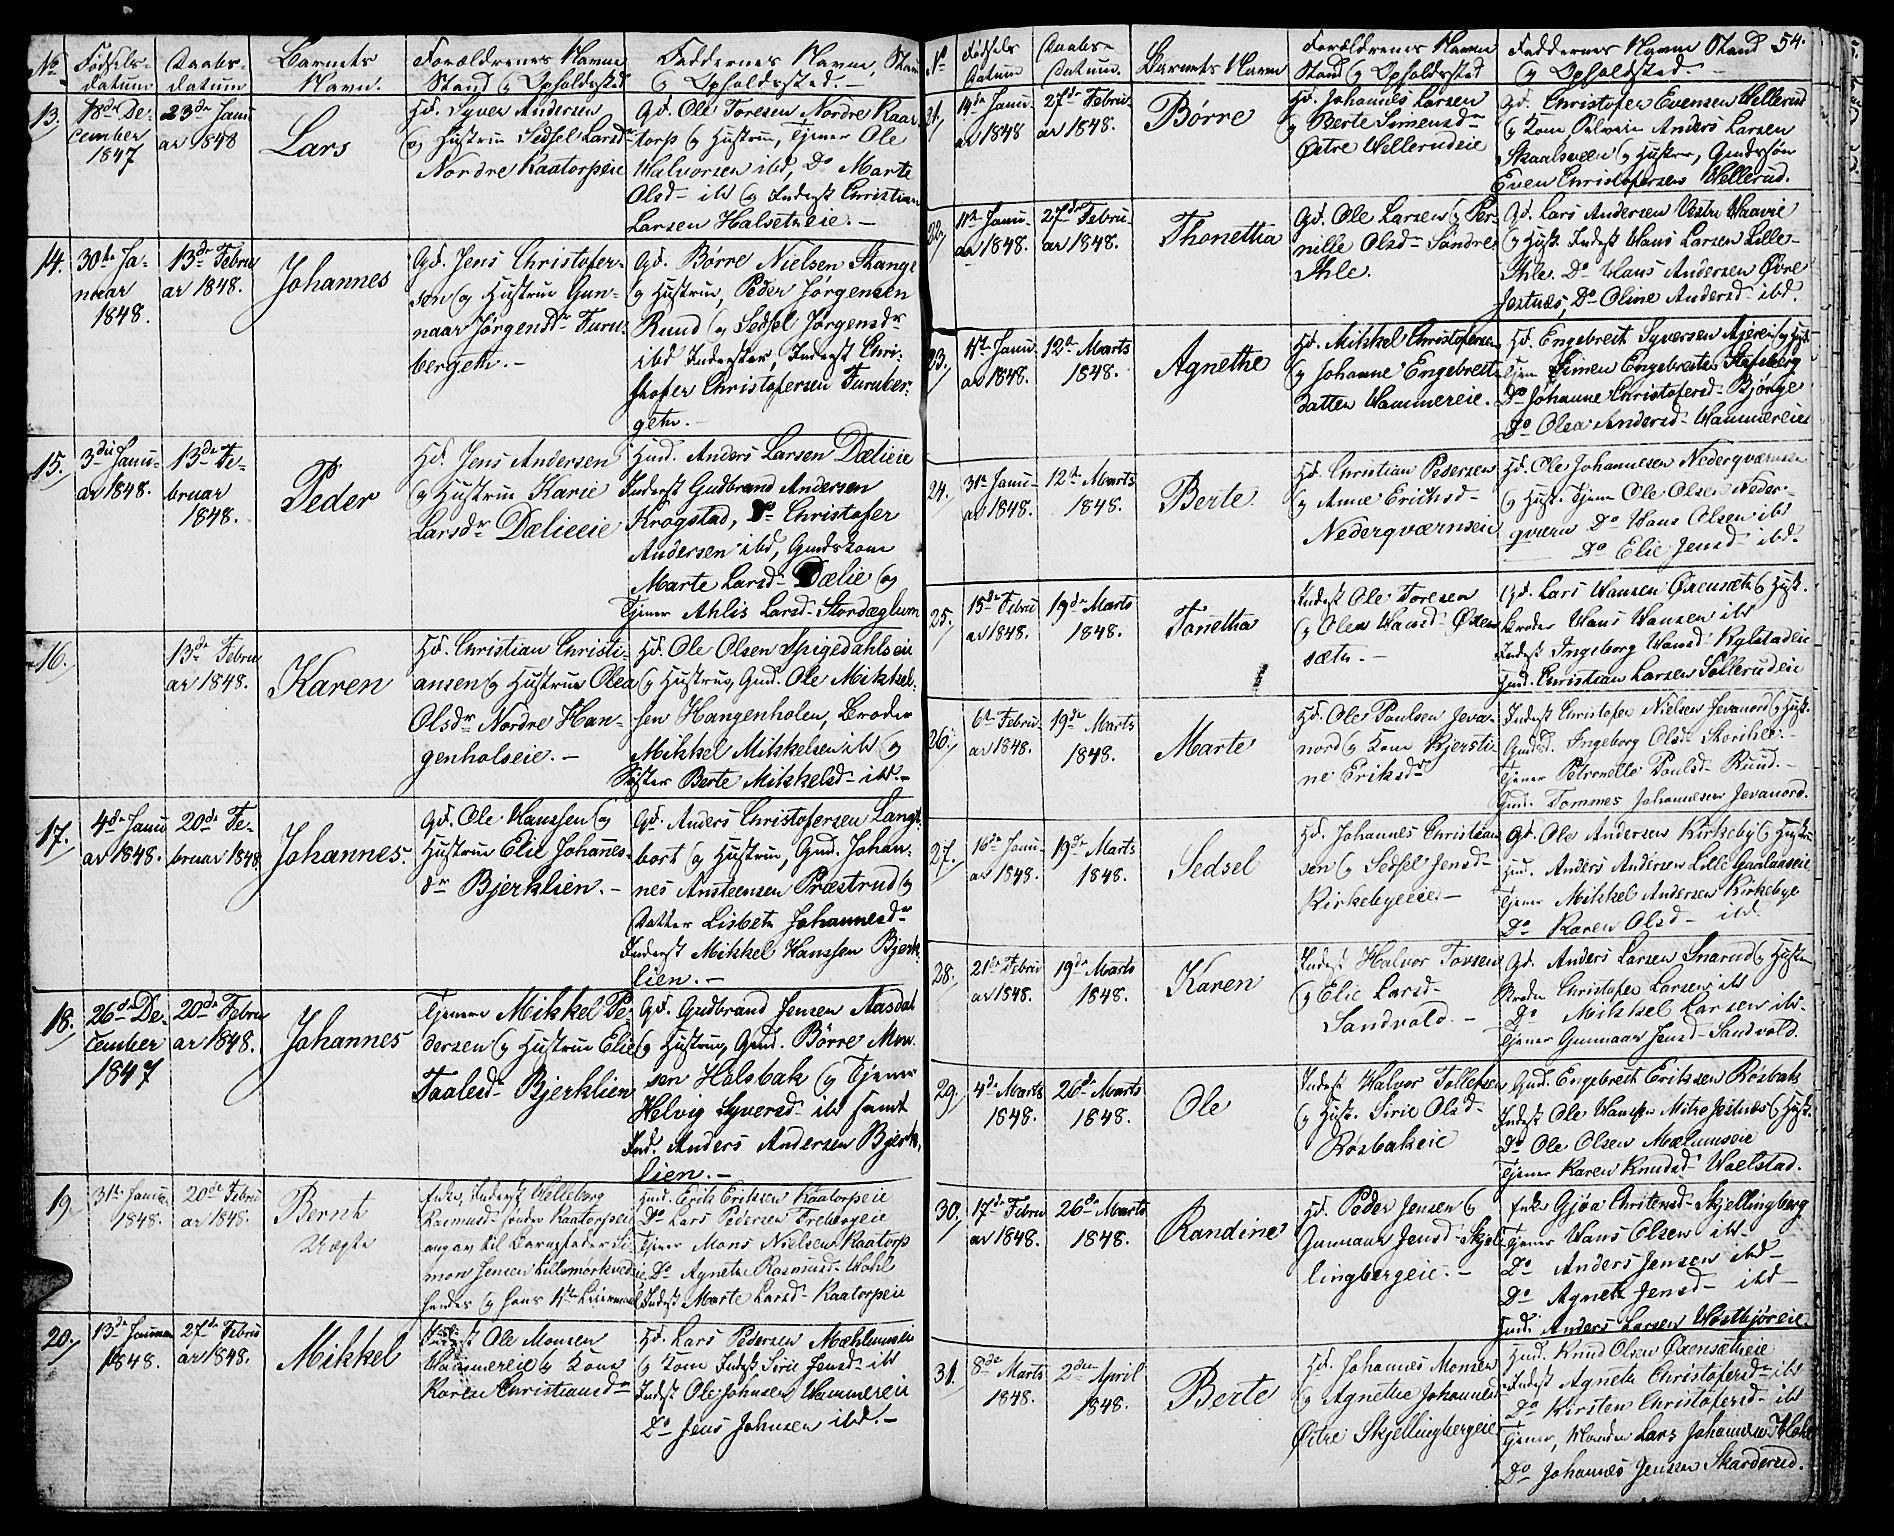 No
Fødsels-
datum
Daabs-
datum
Barnets
Navn.
Forældrenes Navne
Stand og Opholdssted
Faddernes Navne, Stand
og Opholdssted.
13.
18de De-
cember
1847
23de Janu
ar 1848
Lars
Hd. Syver Andersen
og Hustrue Sedsel Larsdr
Nordre Kaatorpeie
Gd. Ole Toresen Nordre Kaa
torp og Hustrue, Tjener Ole
Halvorsen ibd, Do Marte
Olsd- ibd og Inderst Christian
Larsen Halseteie.-
14.
30te Ja-
nuar
1848.
13de Febru
ar 1848.
Johannes
Gd. Jens Christofer-
sen og Hustrue Gun-
naar Jørgensdr Furu-
bergeth.-
Gd. Børre Nielsen Stange
og Hustrue, Peder Jørgensen
Ruud og Sedsel Jørgensdr
ibd Inderster, Inderst Chri-
stofer Christofersen Furuber-
geth.-
15.
3die Janu-
ar 1848.
13de Fe-
bruar
1848.
Peder
Hd. Jens Andersen
og Hustrue Karie
Larsdr Dælieeie
Hmd. Anders Larsen Dælieie
Inderst Gudbrand Andersen
Krogstad, Do Christofer
Andersen ibd, Gmdskone
Marte Larsd- Dælie og
Tjener Ahlis Larsd- Stordæglum
16.
13de Febru
ar 1848.
Karen
Hd. Christian Christi-
ansen og Hustrue Olea
Olsdr Nordre Han-
genholseie.-
Hd. Ole Olsen Spigedahlseie
og Hustrue, Gmd. Ole Mikkel-
sen Hangenholen, Broder
Mikkel Mikkelsen ibd og
Søster Berte Mikkelsd- ibd.-
17.
4de Janu
ar 1848.
20de Fe-
bruar 1848
Johannes.
Gd. Ole Hanssen og
Hustrue Elie Johanes-
dr Bjerklien.-
Gd. Anders Christofersen Lang-
bort og Hustrue, Gmd. Johan-
nes Ansteensen Præstrud og
Datter Lisbeth Johannesdr
Inderst Mikkel Hanssen Bjerk-
lien.-
18.
26de De-
cember
1847
20de Febru
ar 1848.
Johannes
Tjenere Mikkel Pe-
dersen og Hustrue Elie
Taalesd- Bjerklien
Gd. Gudbrand Jensen Aasdal
og Hustrue, Gmd. Børre Mon-
sen Holsbak og Tjener
Helvig Syversd- ibd samt
Ind. Anders Andersen Bjerk-
lien.-
19.
31te Janu-
1848.
20de Febru
ar 1848.
Bernt
Uægte
Enke, Inderst
Rasmusd- Søndre Kaatorpeie
angav til Barnefader Si-
mon Jensen
hendes og hans 1ste Leiermaal
Hmd. Erik Eriksen Kaatorpeie
Do Lars Pedersen Frebergeie
Tjener Mons Nielsen Kaatorp
Do Agnethe Rasmusd- Hohl
Inderst Marte Larsd- Kaatorpeie
20.
13de Januar
1848.
27de Febru
ar 1848.
Mikkel
Inderst Ole Monsen
Hammereie og Kone
Karen Christiansdr
Hd. Lars Pedersen Mæhlumseie
og Kone Inderst Sirie Jensd- ibd
Inderst Ole Johnsen Hammereie
Do Jens Johnsen ibd.-
No
Fødsels
Datum
Daabs-
Datum.
Barnets Navn
Forældrenes Navne
Stand og Opholdssted
Faddernes Navne Stand
og Opholdssted.
54.
21.
14de Janu-
ar 1848
27de Febru-
ar 1848.
Børre
Hd. Johannes Larsen
og Berte Simensdr
Østre Hellerudeie
Gd. Christofer Evensen Hellerud
og Kone Anders Larsen
og Hustrue, Gaardsøn
Even Christofersen Hellerud.
22.
11te Janu-
ar 1848.
27de Febru-
ar 1848.
Thonetha
Gd. Ole Larsen og Per-
nille Olsdr Søndre
Ihle.
Gd. Lars Andersen Vestre
og Hust. Inderst Hans Larsen Lille-
Ihle, Do Hans Andersen Øvre
Jestnes, Do Oline Andersd- ibd.
23.
11te Janu-
ar 1848.
12te Marts
1848.
Agnethe
Hd. Mikkel Christofersen
og Johanne Engebrets-
datter Hammereie.
Hd. Engebreth Syversen og Hust.
Tjen Simen Engebretsen
Do Johanne Christofersd- Bjørge
Do Olea Andersd- Hammereie
24.
31te Janu-
ar 1848.
12te Marts
1848.
Berte
Hd. Christian Pedersen
og Anne Eriksd-
Nederqværnseie
Hd. Ole Johannesen Nederqværnseie
og Hust. Tjener Ole Olsen Neder-
qværn Do Hans Olsen ibd
Do Elie Jensd- ibd.
25.
15de Febru
ar 1848.
19de Marts
1848.
Tonetha
Inderst Ole Toresen
og Olea Hansd- Øxen
sæth.-
Gd. Lars Hansen Øxensæth og Hust.
Broder Hans Hansen ibd
Inderst Ingeborg Hansd-
Hmd. Christian Larsen Sollerudeie
26.
6te Febru-
ar 1848.
19de Marts
1848.
Marte
Hd. Ole Poulsen Jeva-
nord og Kone Kjersti-
ne Eriksdr
Inderst Christofer Nielsen Jevanord og Hust.
Gmd. Ingeborg Olsd-
Tjener Petronelle Poulsd- Ruud.-
Gmd. Tommes Johannesen Jevanord.
27.
16de Janu-
ar 1848.
19de Marts
1848.
Sedsel
Hd. Johannes Christian
sen og Sedsel Jensd-
Kirkebyeie.-
Gd. Ole Andersen Kirkeby og Hustr.
Hmd. Anders Andersen Lille
Tjener Mikkel Andersen Kirkebye
Do Karen Olsd- ibd.
28.
21de Febru
ar 1848.
19de Marts
1848.
Karen
Inderst Halvor Tovsen
og Elie Larsd-
Sandvold.-
Gd. Anders Larsen Snarud og Hustr
Broder Christofer Larsen ibd
Do Mikkel Larsen ibd-
Tjener Gunnaar Jensd- Sandvold.
29.
4de Marts
1848.
26de Marts
1848.
Ole
Inderst Halvor Tollefsen
og Hust. Sirie Olsd-
Rosbakeie
Gmd. Engebreth Eriksen Rosbak
Inderst Ole Hansen Mitre Jestnes og Hust.
Do Ole Olsen Mælumseie
Tjener Karen Knudsd- Hoelstad.
30.
17de Febru
ar 1848.
26de Marts
1848.
Randine
Hd. Peder Jensen og
Gunnaar Jensd- Skjel-
lingbergeie.-
Enke Gjøa Christensd- Skjellingberg
Tjener Hans Olsen ibd-
Do Anders Jensen ibd-
Do Agneth Jensd- ibd-
Hmd. Anders Larsen
31.
8de Marts
1848.
2den April
1848.
Berte
Hd. Johannes Monsen
og Agnethe Johannesd
Østre Skjellingbergeie
Hmd. Knud Olsen Øxensætheie
Inderst Agneth Christofersd- ibd
Do Kirsten Christofersd- ibd
Tjener, Lars Johannsen Hohl
Do Johannes Jensen Skarderud.